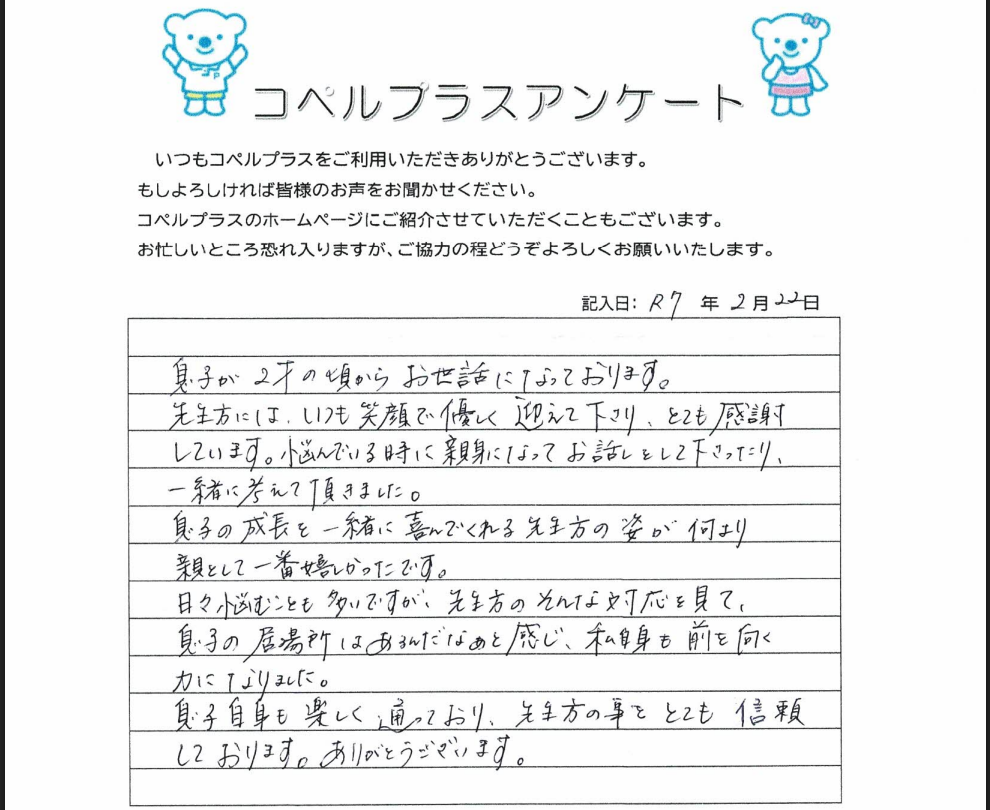 コペルプラスアンケート
いつもコペルプラスをご利用いただきありがとうございます。
もしよろしければ皆様のお声をお聞かせください。
コペルプラスのホームページにご紹介させていただくこともございます。
お忙しいところ恐れ入りますが、ご協力の程どうぞよろしくお願いいたします。
記入日: R7 年 2月22日
息子が 2才の頃から お世話になっております。
先生方には、いつも笑顔で優しく迎えて下さり、とても感謝
しています。悩んでいる時に親身になってお話しをして下さったり、
一緒に考えて頂きました。
息子の成長を一緒に喜んでくれる先生方の姿が何より
親として一番嬉しかったです。
日々悩むことも多いですが、先生方のそんな対応を見て、
息子の居場所はあるんだなぁと感じ、私自身も前を向く
力になりました。
息子自身も楽しく通っており、先生方の事をとても信頼
しております。ありがとうございます。